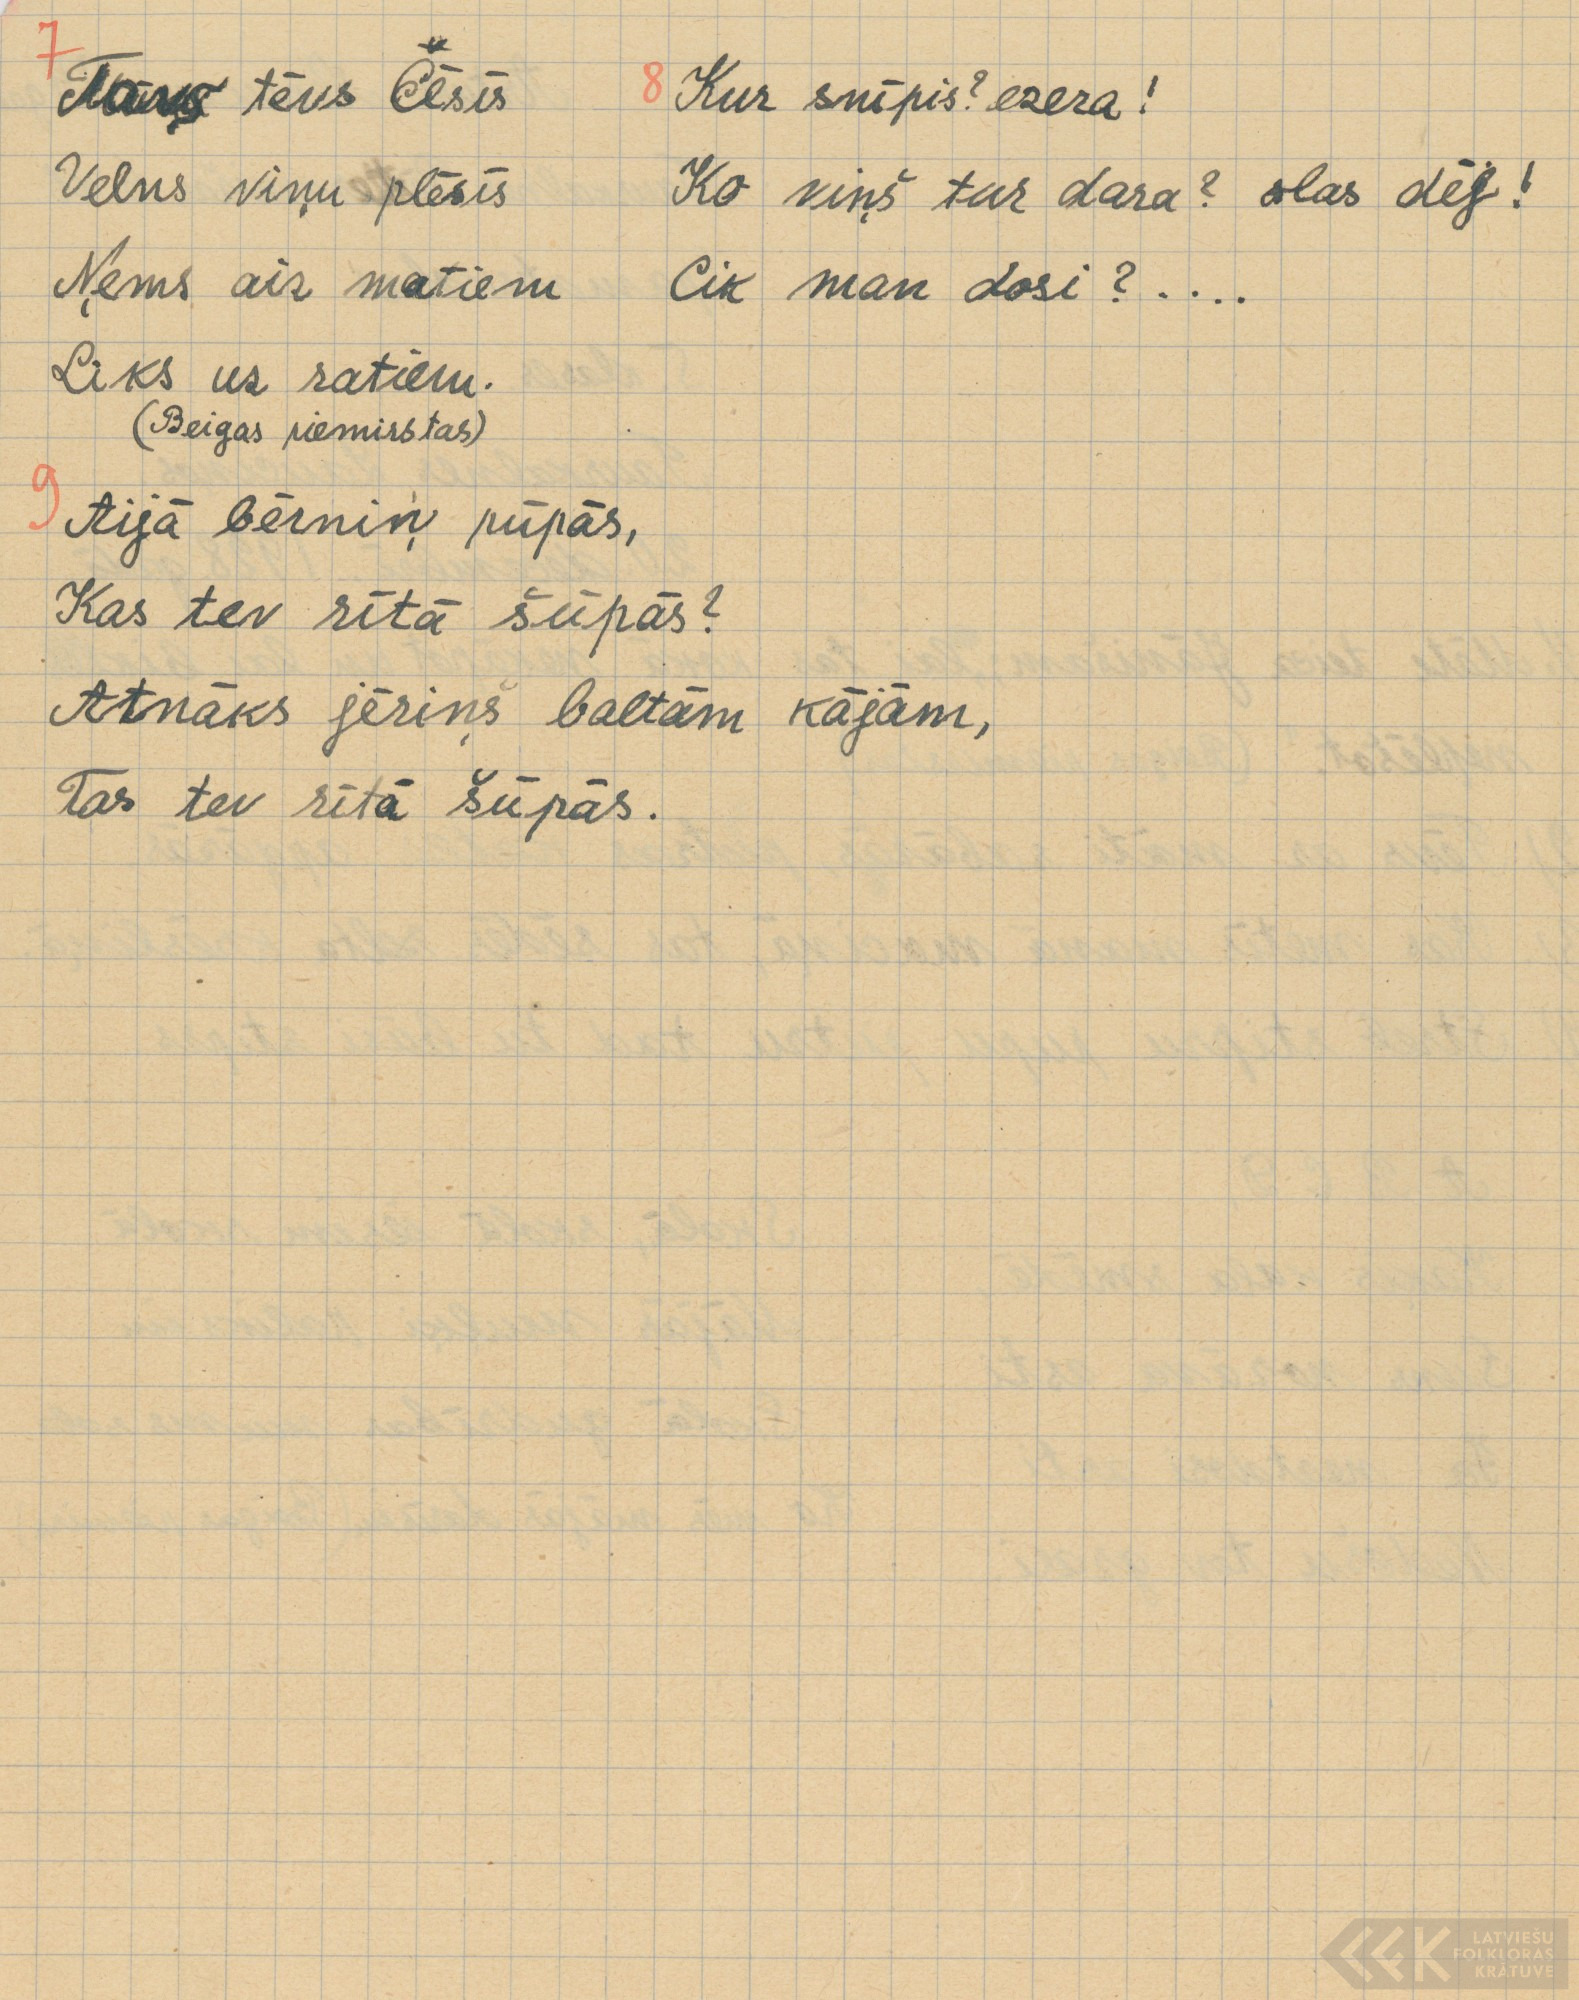 7
tēvs Čēsīs
Velns viņu plēsīs
Ņems aiz matiem
Liks uz ratiem.
(Beigas piemirstas)
8 Kur snīpis? ezera!
Ko viņš tur dara? olas dēj!
Cik man dosi? ....
9
Aijā bērniņ pūpās,
Kas tev rītā šūpās?
Atnāks jēriņš baltām kājām,
Tas tev rītā šūpās.
LATVIEŠU
FOLKLORAS
KRĀTUVE